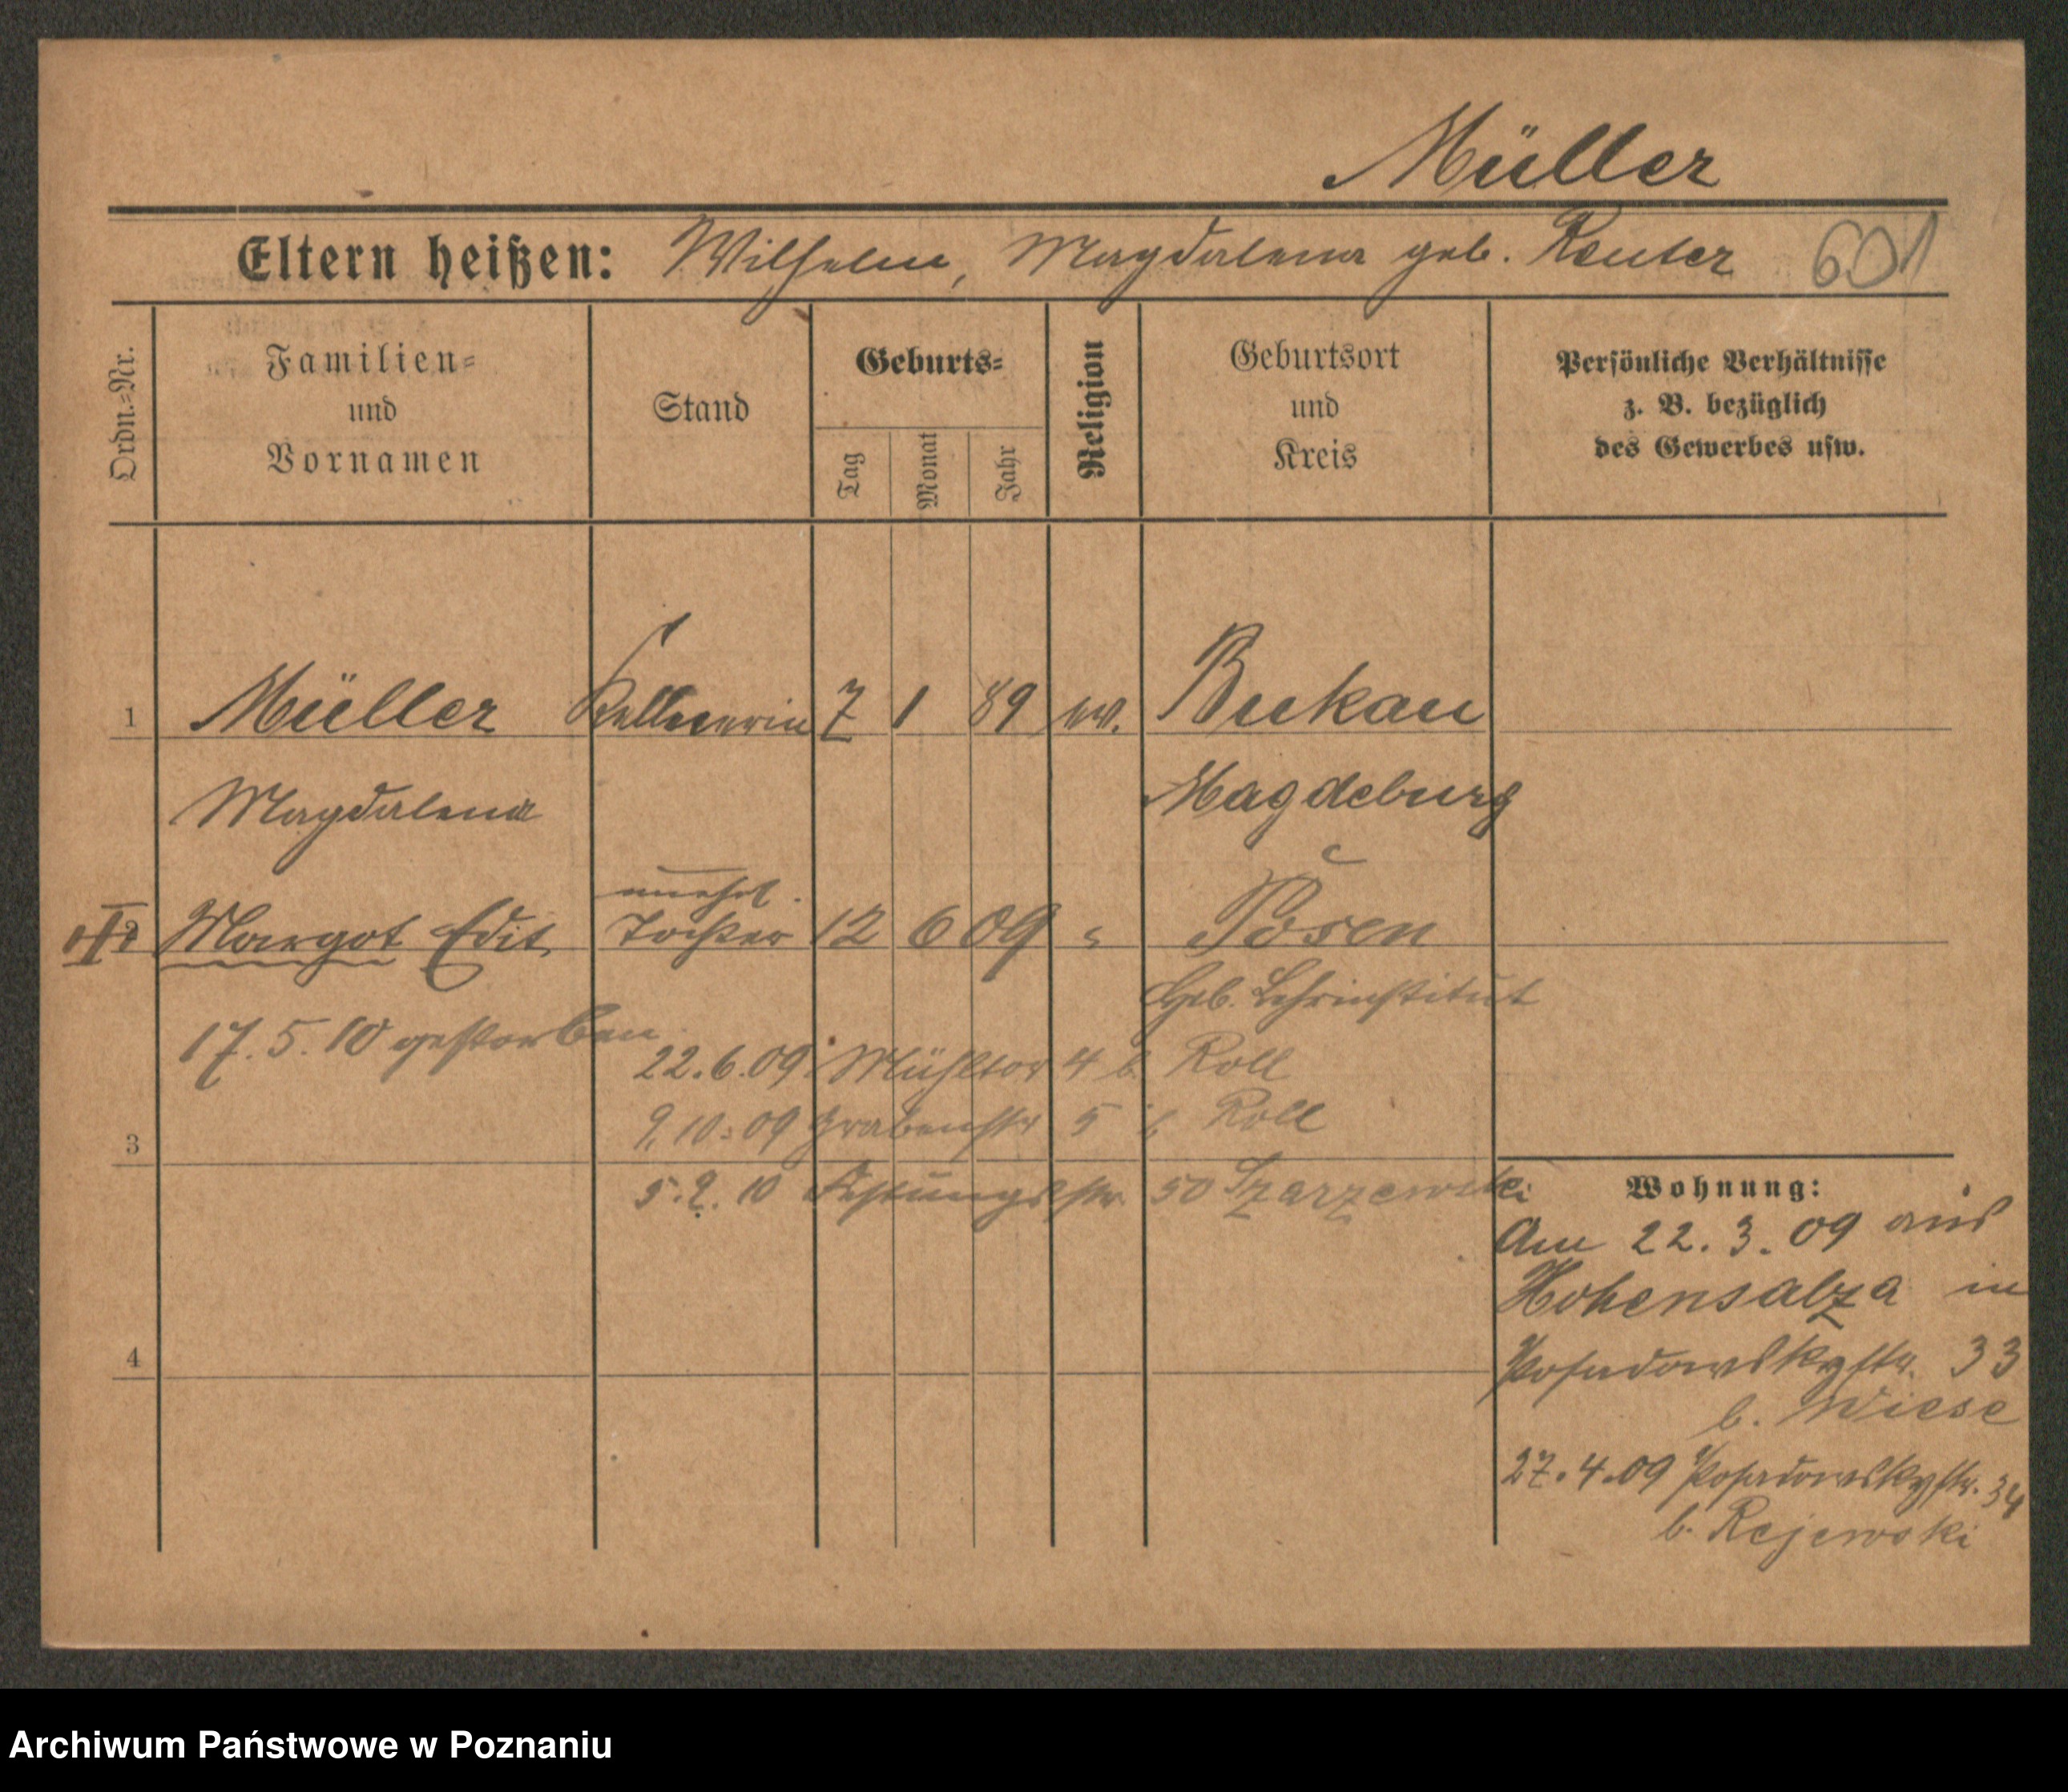 Müller
Eltern heißen: Wilhelm, Magdalena geb. Reuter 601
Ordn.=Nr.
Familien=
und
Vornamen
Stand
Geburts=
Tag
Monat
Jahr
Religion
Geburtsort
und
Kreis
Persönliche Verhältnisse
z. B. bezüglich
des Gewerbes usw.
1 Müller Kellnerin 7 1 89 ev. Bukau
Magdalena Magdeburg
unehel.
2 Margot Edit Tochter 12 6 09 " Posen
Geb. Lehrinstitut
17. 5. 10 gestorben
22.6.09 Mühltor 4 b. Roll
9.10.09 Grabenstr 5 b. Roll
3
5.2.10 Festungsstr. 50 Szarzewski
Wohnung:
Am 22.3.09 aus
Hohensalza in
4
Posadowskystr. 33
b. Wiese
27.4.09 Posadowskystr. 34
b. Rejewski
Archiwum Państwowe w Poznaniu